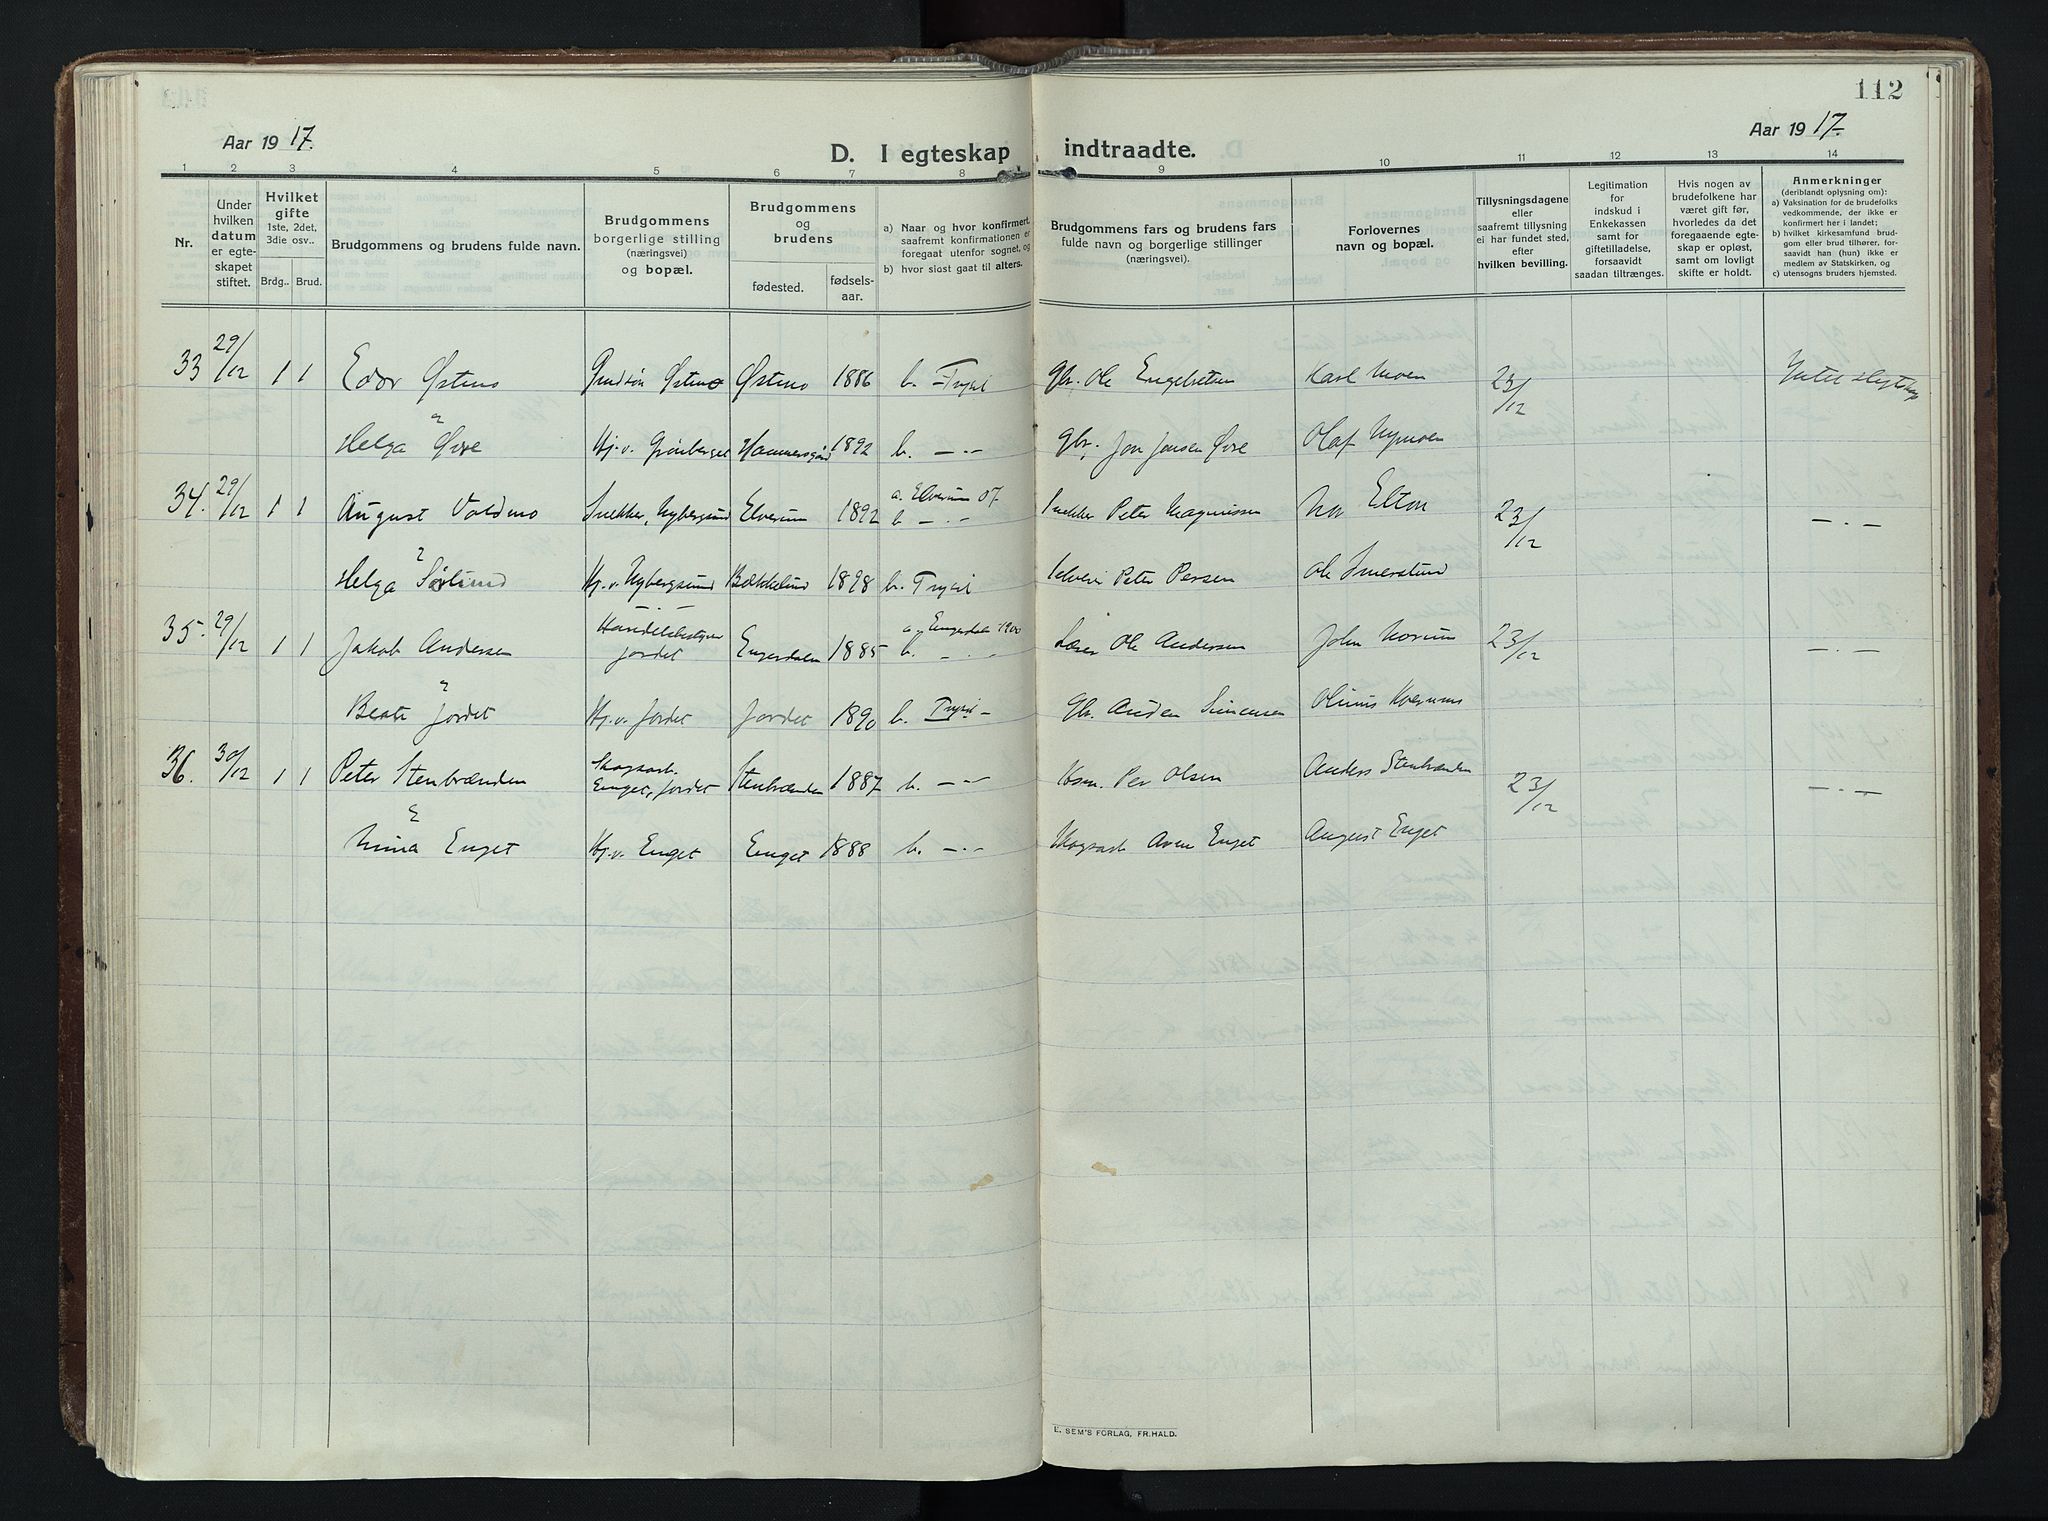 112
Aar 1917.
D. I egteskap indtraadte.
Aar 1917.
1 2 3 4 5 6 7 8 9 10 11 12 13 14
Nr.
Under hvilken datum er egteskapet stiftet.
Hvilket gifte 1ste, 2det, 3die osv..
Brdg.. Brud.
Brudgommens og brudens fulde navn.
Brudgommens borgerlige stilling (næringsvei) og bopæl.
Brudgommens og brudens
fødested. fødsels-aar.
a) Naar og hvor konfirmert, saafremt konfirmationen er foregaat utenfor sognet, og
b) hvor sidst gaat til alters.
Brudgommens fars og brudens fars fulde navn og borgerlige stillinger (næringsvei).
Forlovernes navn og bopæl.
Tillysningsdagene eller saafremt tillysning ei har fundet sted, efter hvilken bevilling.
Legitimation for indskud i Enkekassen samt for giftetilladelse, forsaavidt saadan tiltrænges.
Hvis nogen av brudefolkene har været gift før, hvorledes da det foregaaende egteskap er opløst, samt om lovligt skifte er holdt.
Anmerkninger (deriblandt oplysning om):
a) Vaksination for de brudefolks vedkommende, der ikke er konfirmert her i landet;
b) hvilket kirkesamfund brudgom eller brud tilhører, forsaavidt han (hun) ikke er medlem av Statskirken, og
c) utensogns bruders hjemsted.
33 29/12 1 1 Edor Østmo Østmo Østmo 1886 b. Trysil Gbr. Ole Engebretsen Karl Moen 23/12 Intet slegtskap
Helga Øvre Hj.v. Grønberget 1892 b. —.— Gbr. Jon Jonsen Øvre Olaf Nymoen
34. 29/12 1 1 August Voldmo Snekker, Nybergsund Elverum 1892 a. Elverum 07. b. —.— Snekker Peter Magnussen Elton 23/12 —.—
Helga Sørlund Hj.v. Nybergsund Bækkelund 1898 b. Trysil Peter Persen Ole
35. 29/12 1 1 Jakob Andersen Handelsbestyrer Jordet Engerdalen 1885 a. Engerdalen 1900 b. —.— Ole Andersen John 23/12 —.—
Beate Jordet Hj.v. Jordet Jordet 1890 b. Trysil Gbr. Simensen Olinus
36. 30/12 1 1 Peter Stenbrænden Skogsarb. Enget, Jordet Stenbrænden 1887 b. —.— Hsm. Per Olsen Anders Stenbrænden 23/12 —.—
Enget Hj.v. Enget Enget 1888 b. —.— Skogsarb. Enget August Enget
E. SEM'S FORLAG, FR.HALD.